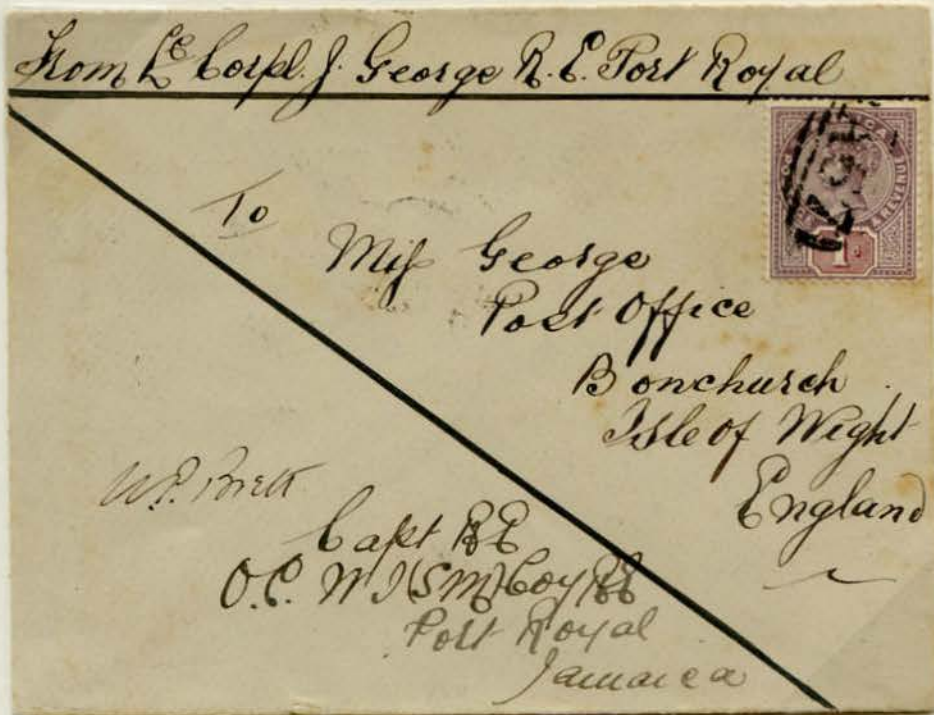 From Lce Corpl. J. George R. E. Port Royal
To
Miss George
Post Office
Bonchurch
Isle of Wight
England
W. P. Brett
Capt RE
O.C. W I (SM) Coy RE
Port Royal
Jamaica
& REVENUE
1d